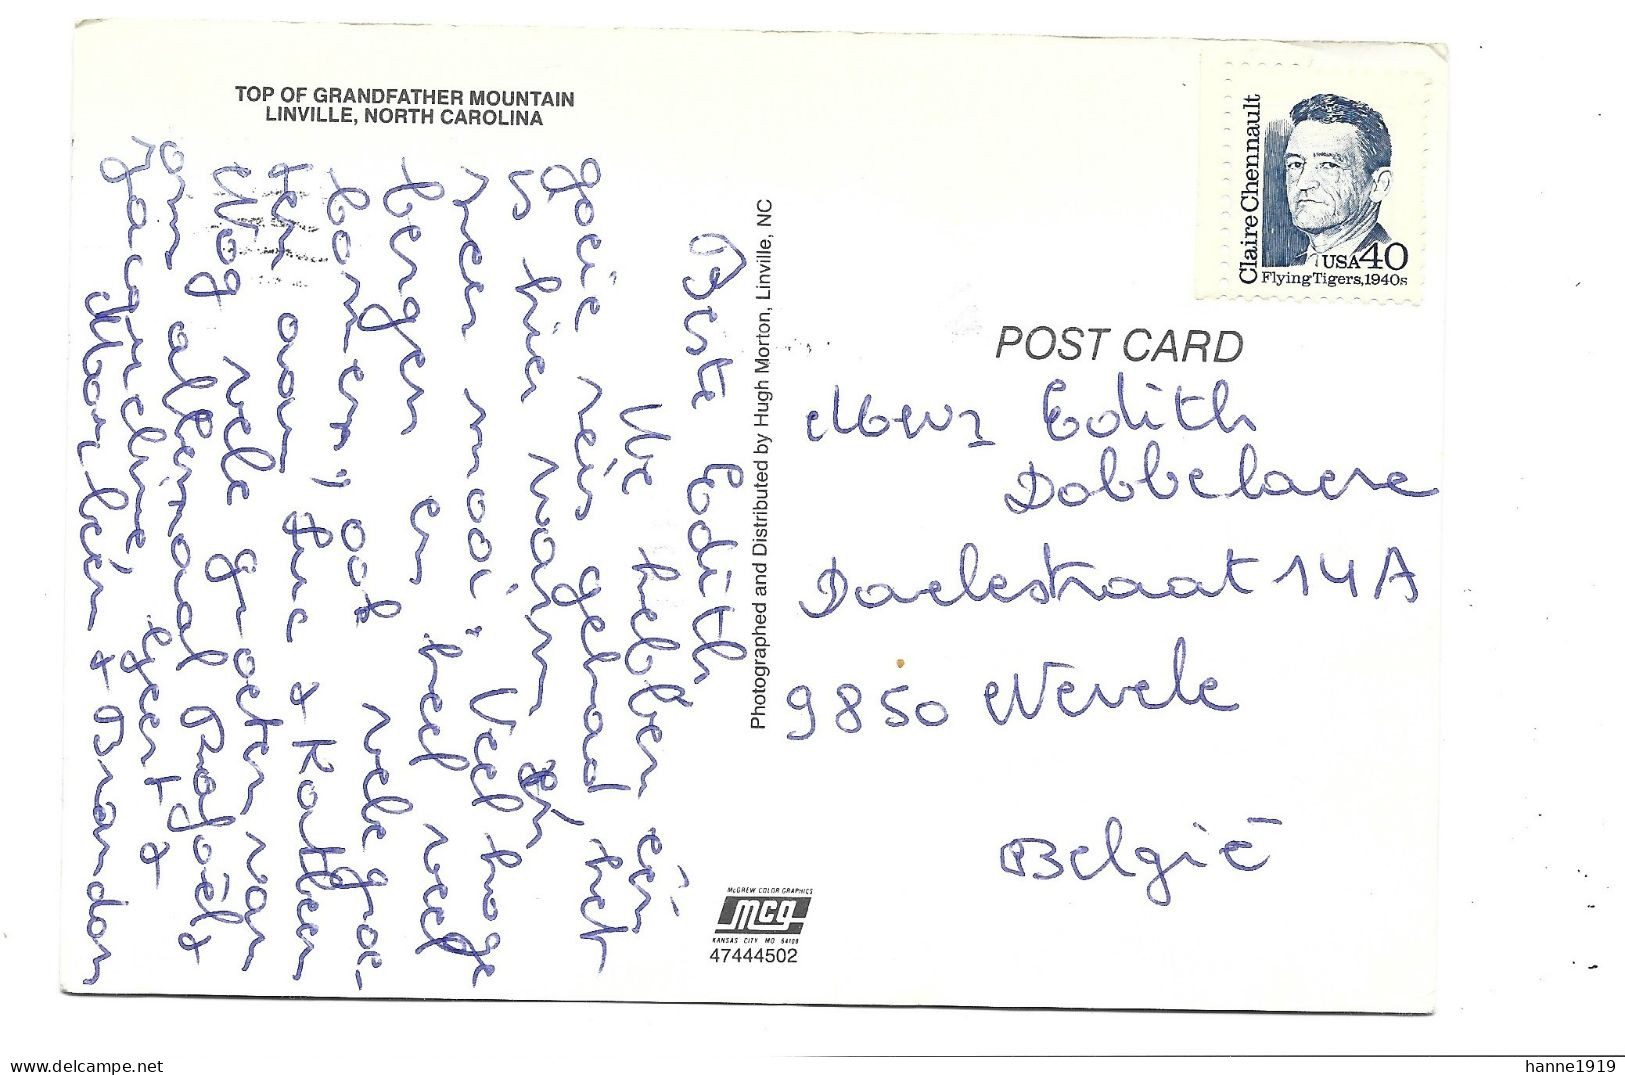 TOP OF GRANDFATHER MOUNTAIN
LINVILLE, NORTH CAROLINA
Beste Edith
We hebben een
goeie reis gehad het
is hier warm en
zeer mooi. Veel hoge
bergen en heel veel
bomen, ook vele groe-
ten aan Luc & Katleen
Nog vele groeten van
om allemaal Rafaël &
Jacqueline Egert &
Marleen & Brandon
Photographed and Distributed by Hugh Morton, Linville, NC
McGREW COLOR GRAPHICS
mcg
KANSAS CITY MO 64108
47444502
Claire Chennault
USA 40
Flying Tigers, 1940s
POST CARD
Mevr Edith
Dobbelaere
Daelestraat 14A
9850 Nevele
België
hanne1919